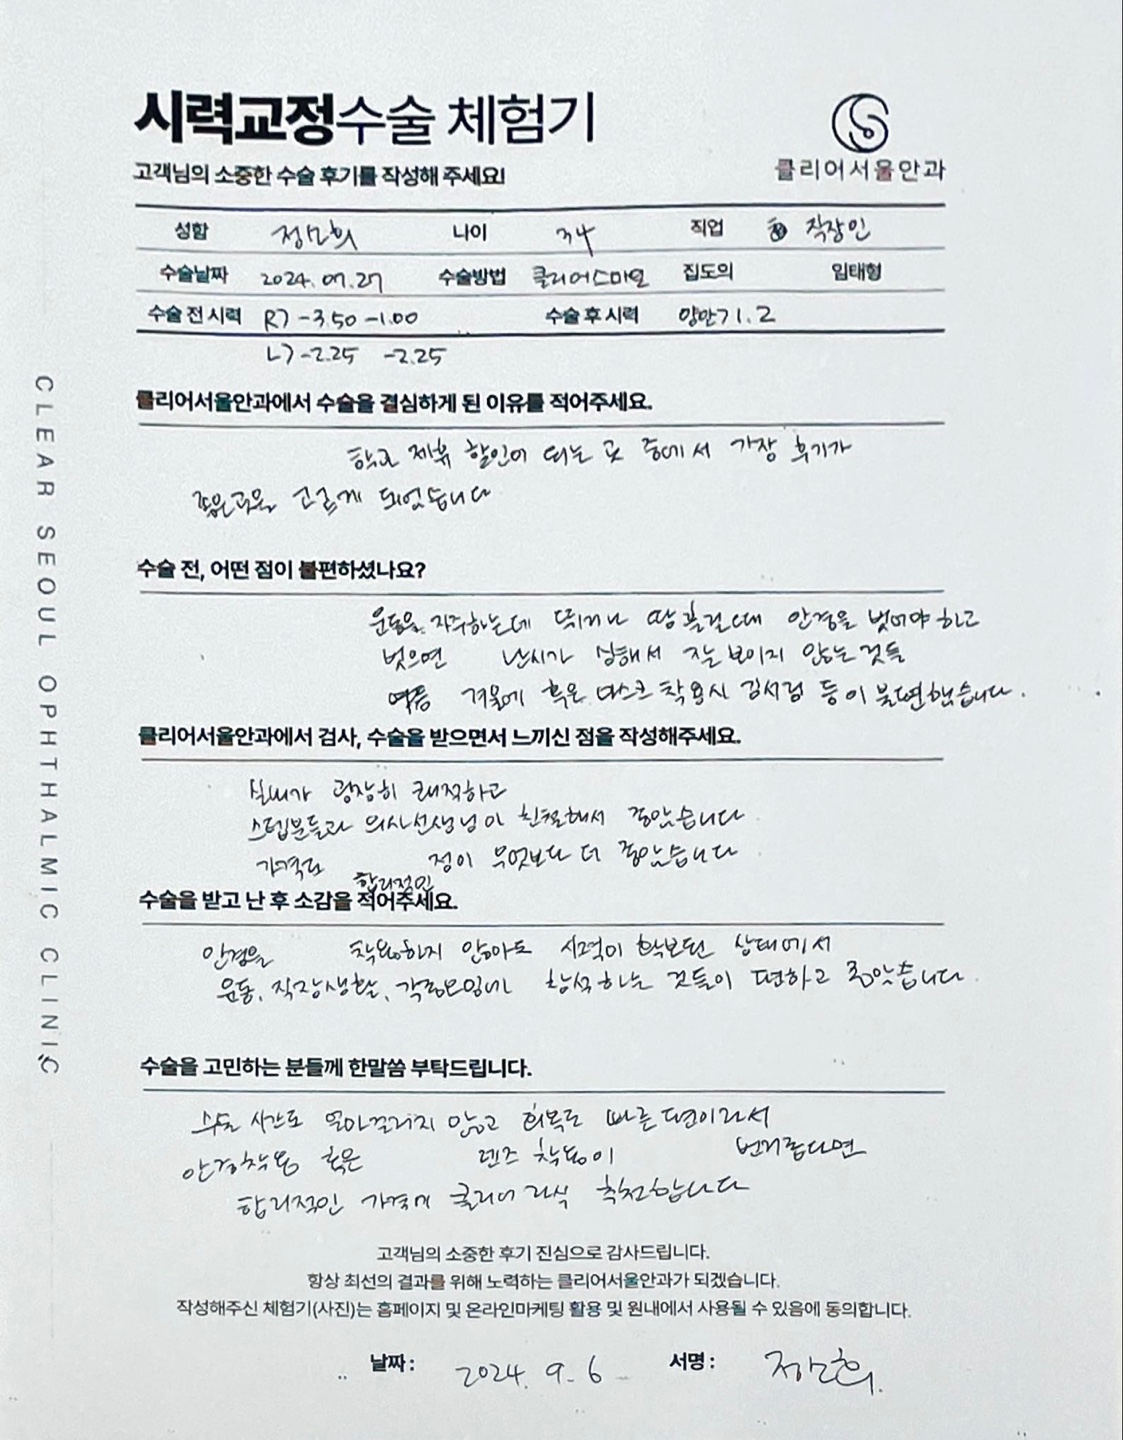 시력교정수술 체험기
고객님의 소중한 수술 후기를 작성해 주세요!
클리어서울안과
성함 나이 34 직업 직장인
수술날짜 2024. 07. 27 수술방법 클리어스마일 집도의 임태형
수술 전 시력 R) -3.50 -1.00 수술 후 시력 양안 1.2
L) -2.25 -2.25
클리어서울안과에서 수술을 결심하게 된 이유를 적어주세요.
학교 제휴 할인이 되는 곳 중에서 가장 후기가
좋은곳을 고르게 되었습니다
수술 전, 어떤 점이 불편하셨나요?
운동을 자주하는데 뛰거나 땀흘릴때 안경을 벗어야 하고
벗으면 난시가 심해서 잘 보이지 않는 것들
여름 겨울에 혹은 마스크 착용시 김서림 등이 불편했습니다.
클리어서울안과에서 검사, 수술을 받으면서 느끼신 점을 작성해주세요.
실내가 굉장히 쾌적하고
스텝분들과 의사선생님이 친절해서 좋았습니다
가격도 합리적인 점이 무엇보다 더 좋았습니다
수술을 받고 난 후 소감을 적어주세요.
안경을 착용하지 않아도 시력이 확보된 상태에서
운동, 직장생활, 각종모임에 참석하는 것들이 편하고 좋았습니다
수술을 고민하는 분들께 한말씀 부탁드립니다.
수술 시간도 얼마걸리지 않고 회복도 빠른편이라서
안경착용 혹은 렌즈 착용이 번거롭다면
합리적인 가격에 클리어 라식 추천합니다
고객님의 소중한 후기 진심으로 감사드립니다.
항상 최선의 결과를 위해 노력하는 클리어서울안과가 되겠습니다.
작성해주신 체험기(사진)는 홈페이지 및 온라인마케팅 활용 및 원내에서 사용될 수 있음에 동의합니다.
날짜 : 2024. 9. 6 서명 :
CLEAR SEOUL OPHTHALMIC CLINIC